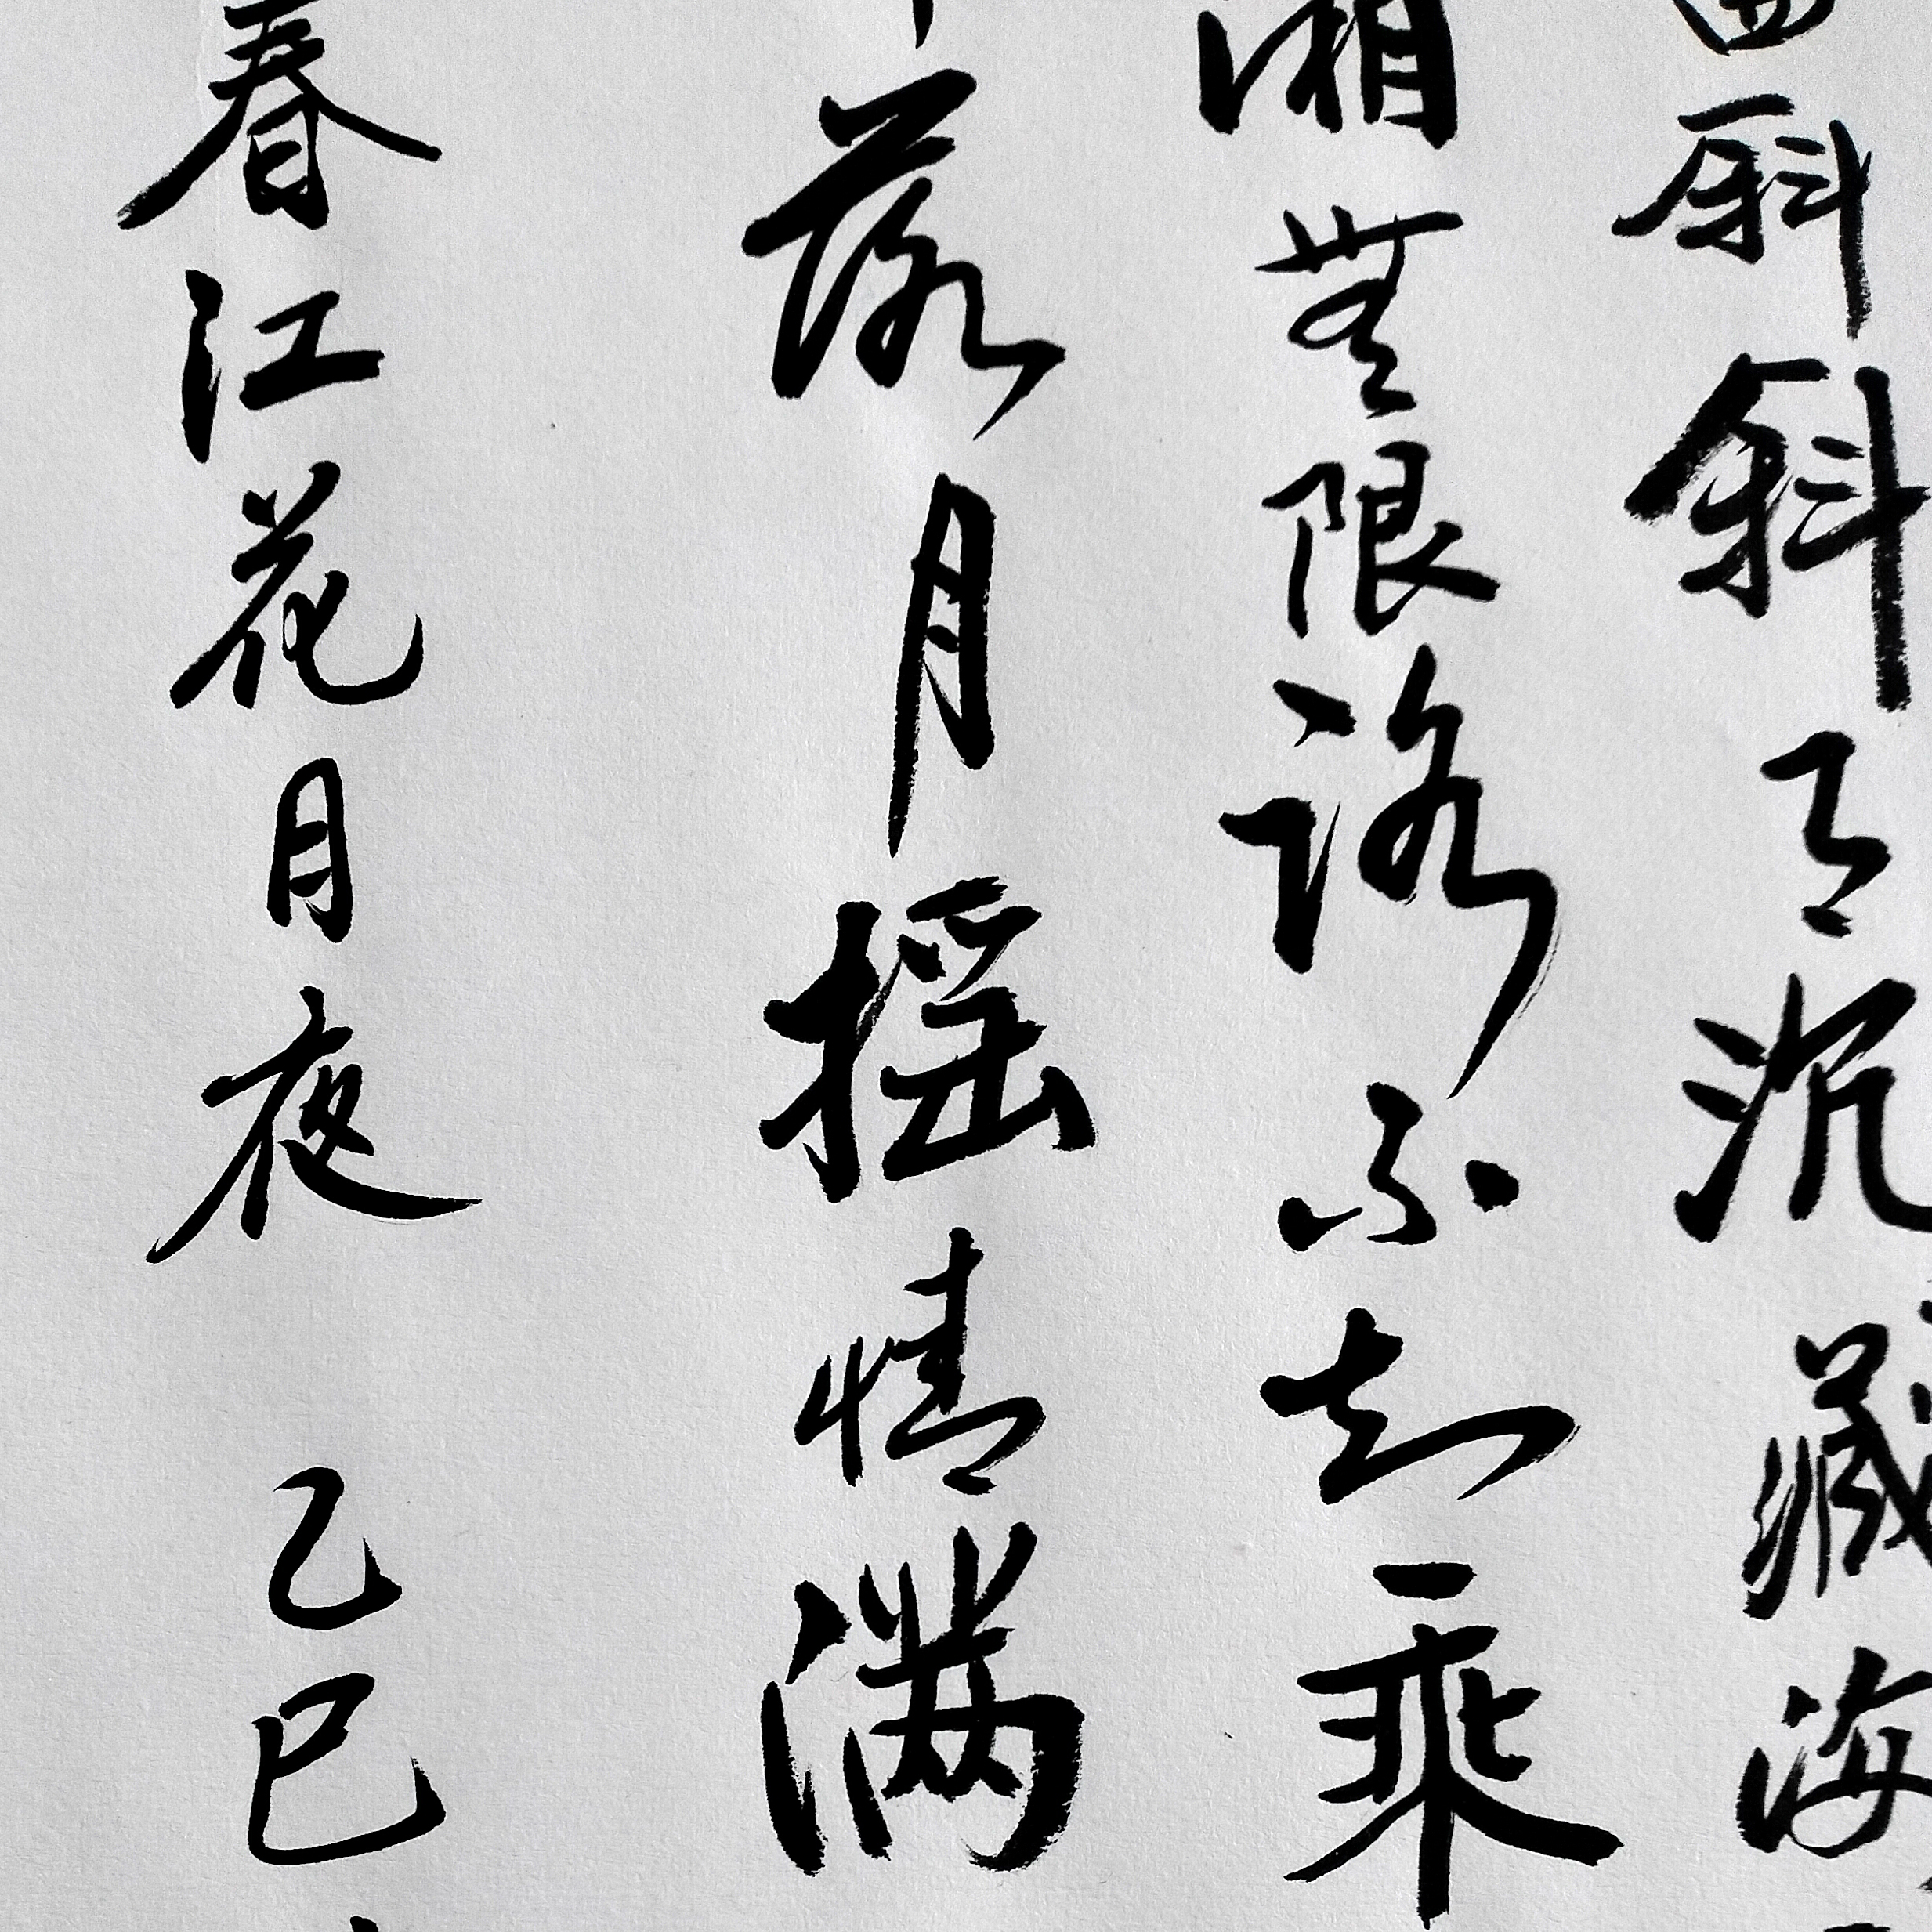 斜斜月沉藏海
湘無限路不知乘
落月摇情满
春江花月夜 乙巳